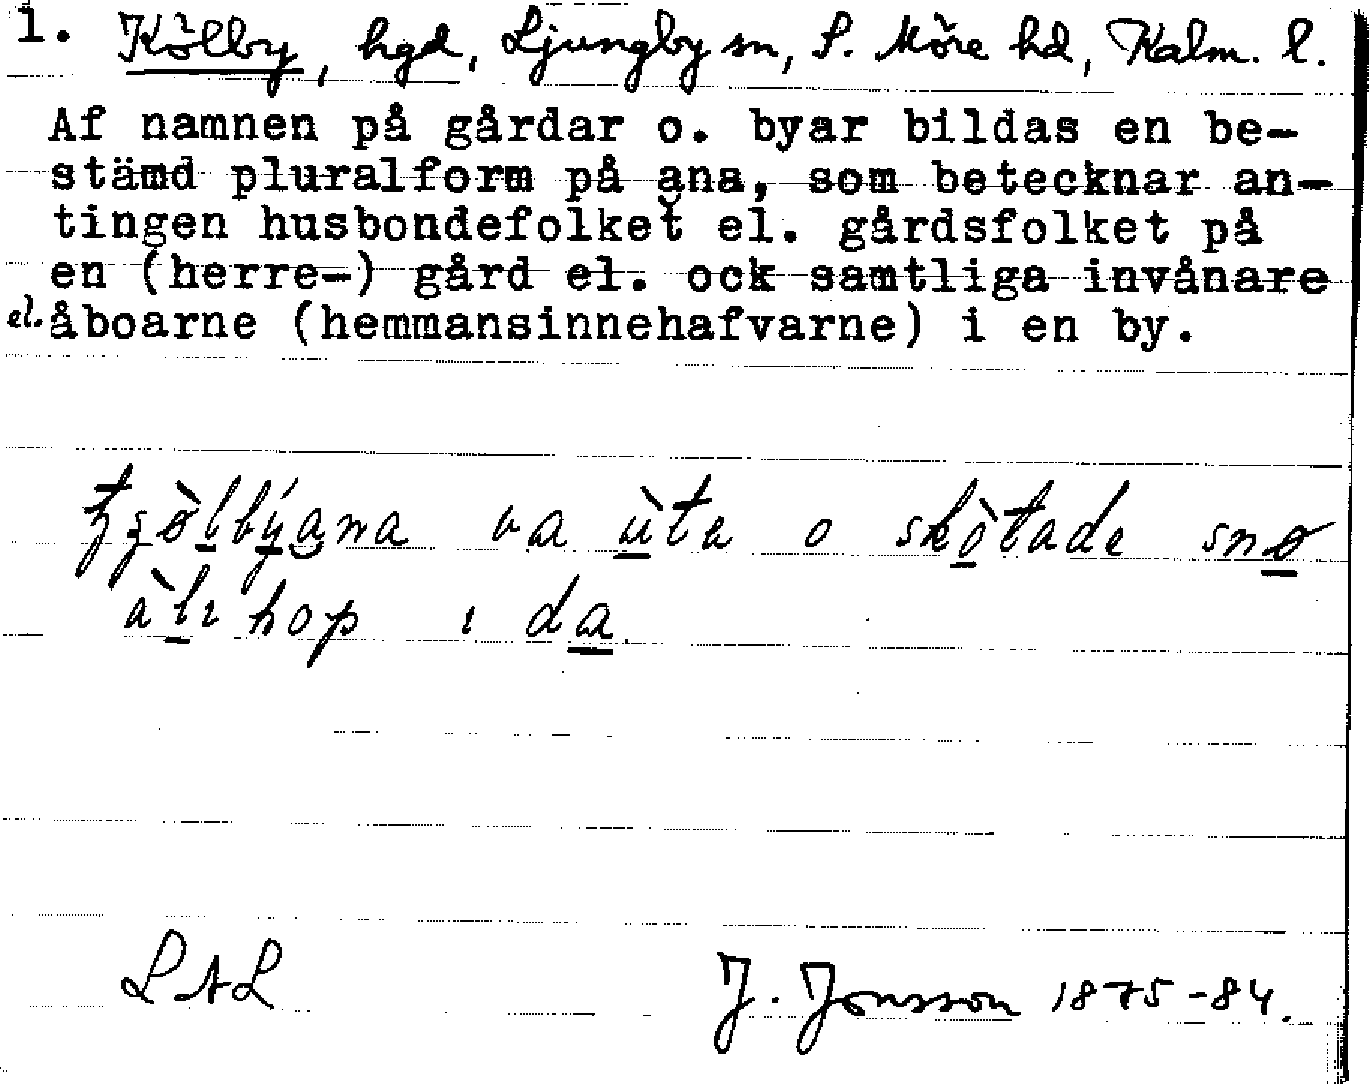 1. Kölby, hgd, Ljungby sn, S. Möre hd, Kalm. l.
Af namnen på gårdar o. byar bildas en be-
stämd pluralform på ana, som betecknar an-
tingen husbondefolket el. gårdsfolket på
en (herre-) gård el. ock samtliga invånare
el. åboarne (hemmansinnehafvarne) i en by.
va ùta o skòtade snø
àlihop ı da
LAL J. Jonsson 1875-84.